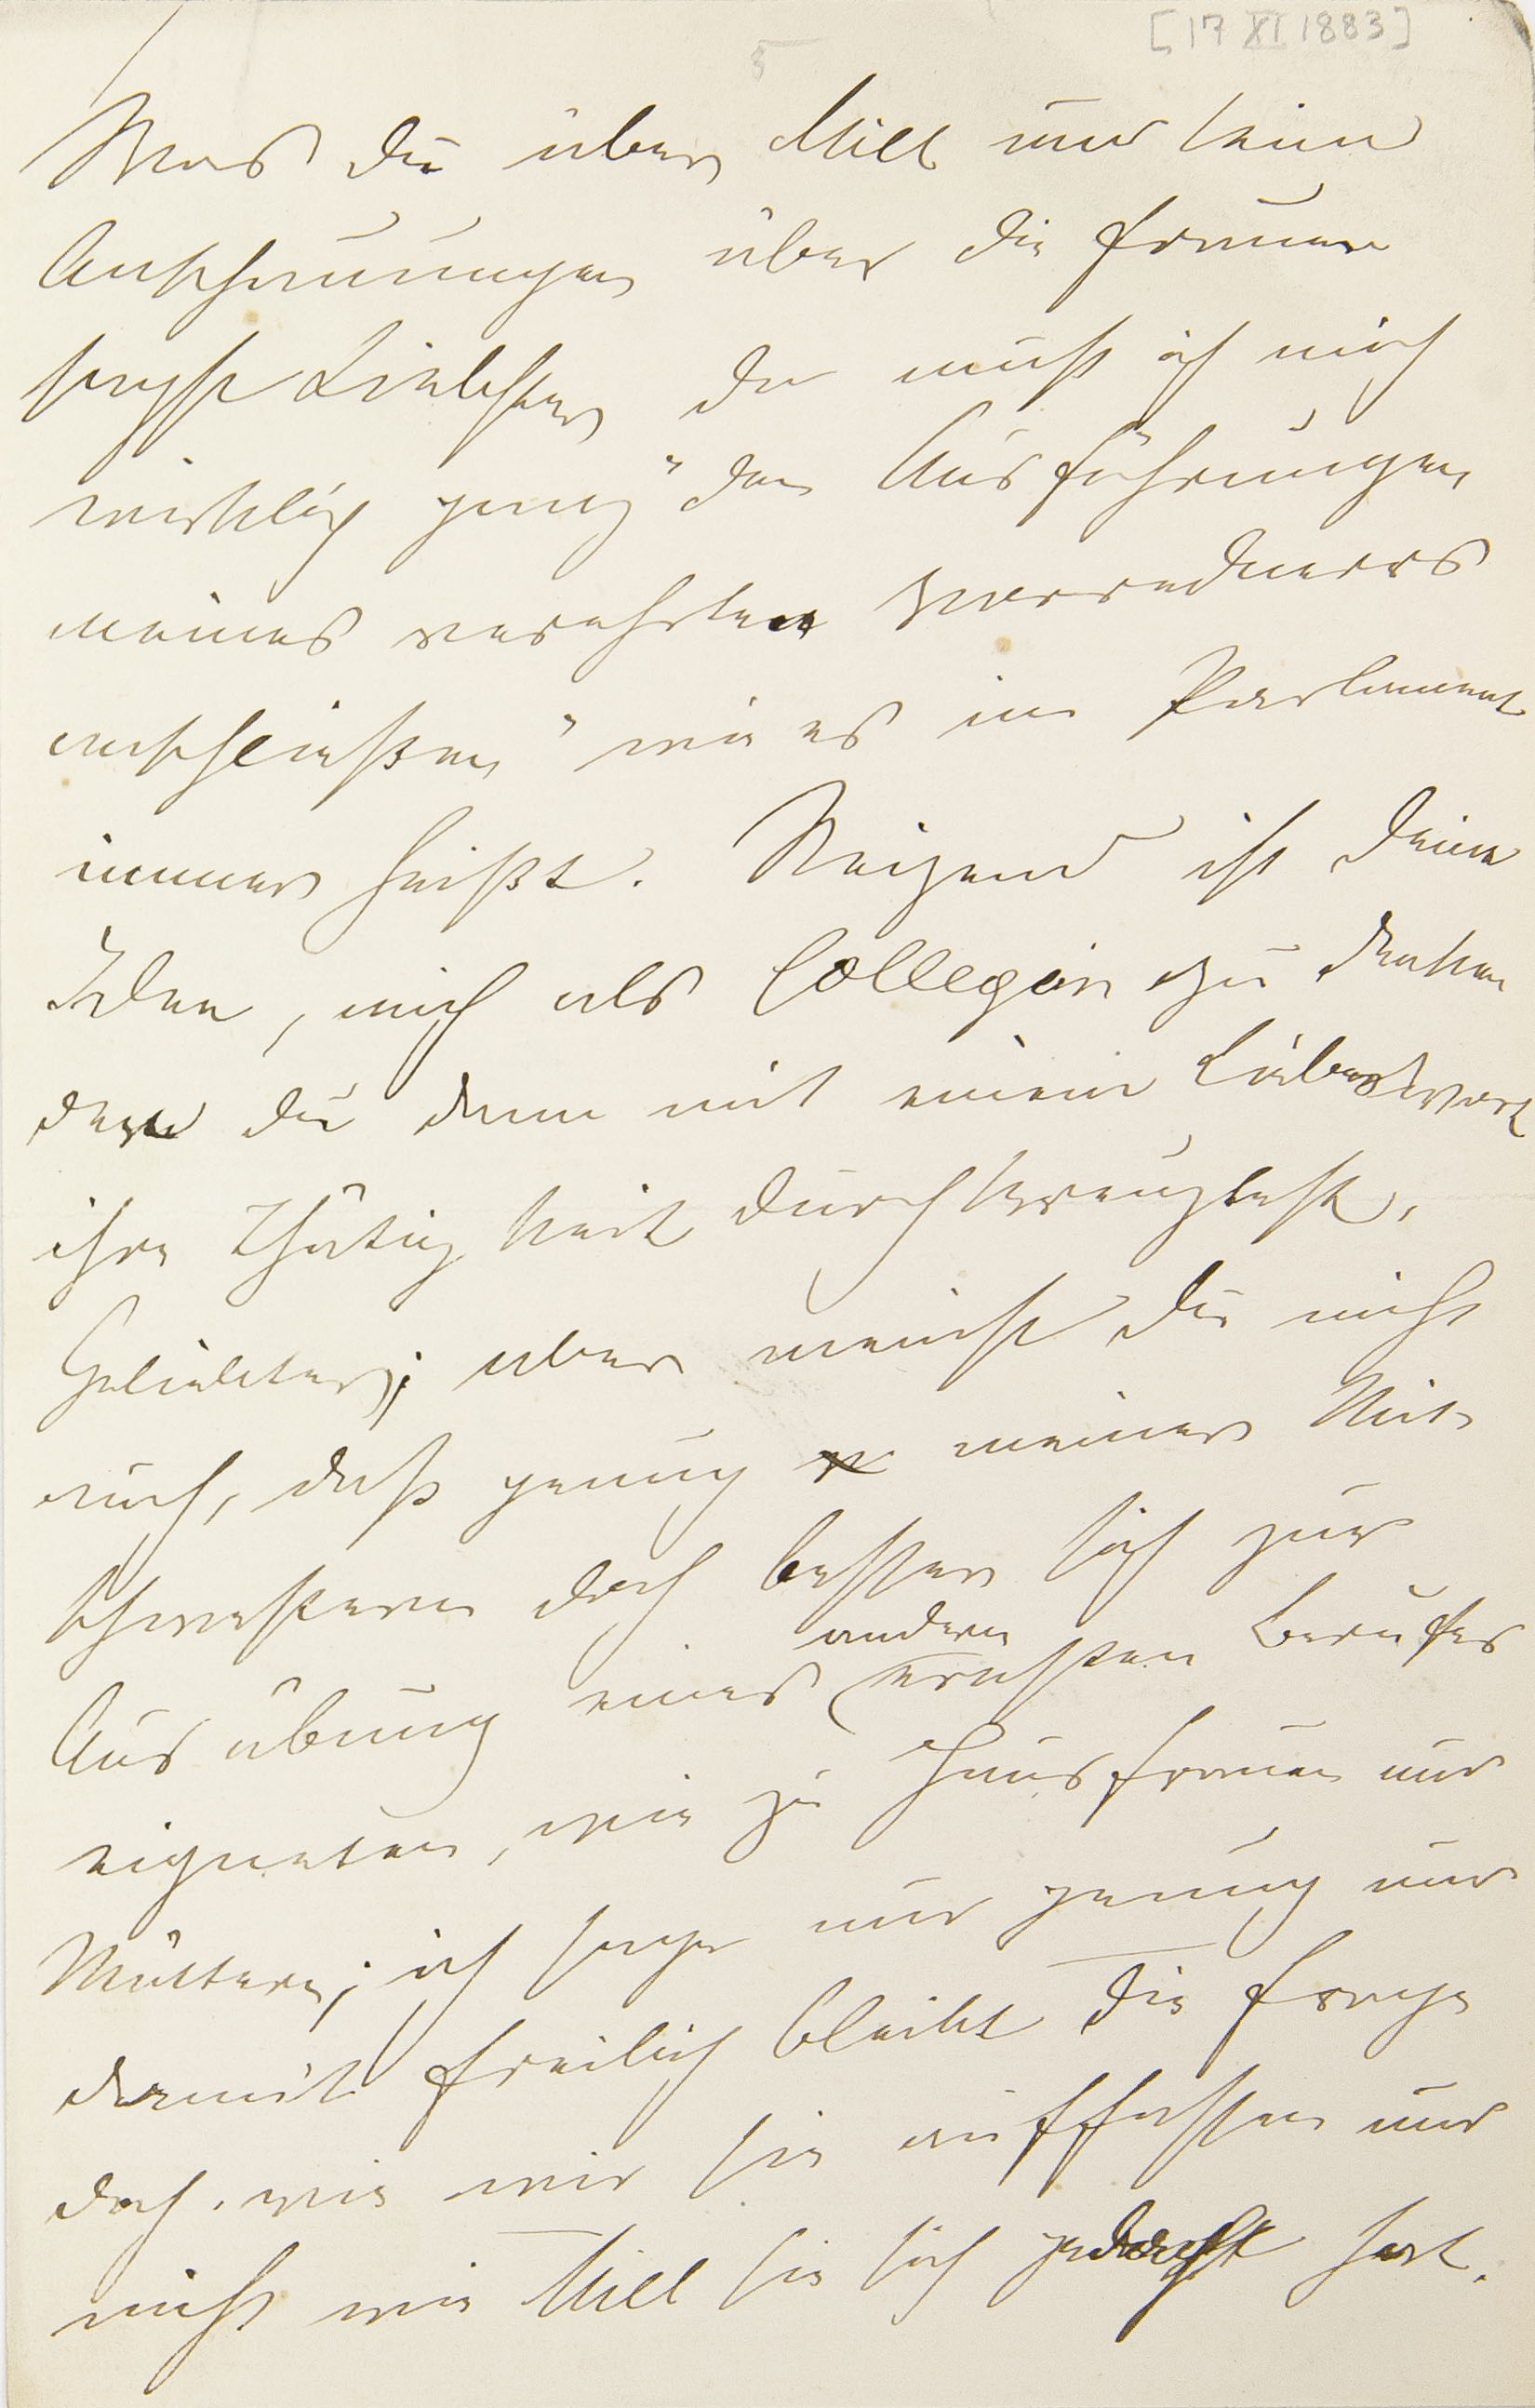 [17 XI 1883]
5
Was Du über Mill und seine
Anschauungen über die Frauen
sagst Liebster, da muß ich mich
wirklich ganz "den Ausführungen
meines verehrten Vorredners
anschließen" wie es im Parlament
immer heißt. Reizend ist deine
Idee, mich als Collegin zu denken
der Du dann mit einem Liebeswort
ihre Thätigkeit durchkreuztest,
Geliebter; aber meinst Du nicht
auch, daß genug meiner Mit-
schwestern doch besser sich zur
Ausübung eines andern ernsten Berufes
eigneten, wie zu Hausfrauen und
Müttern; ich sage nur genug und
damit freilich bleibt die Frage
doch, wie wir sie auffassen und
nicht wie Mill sie sich gedacht hat.